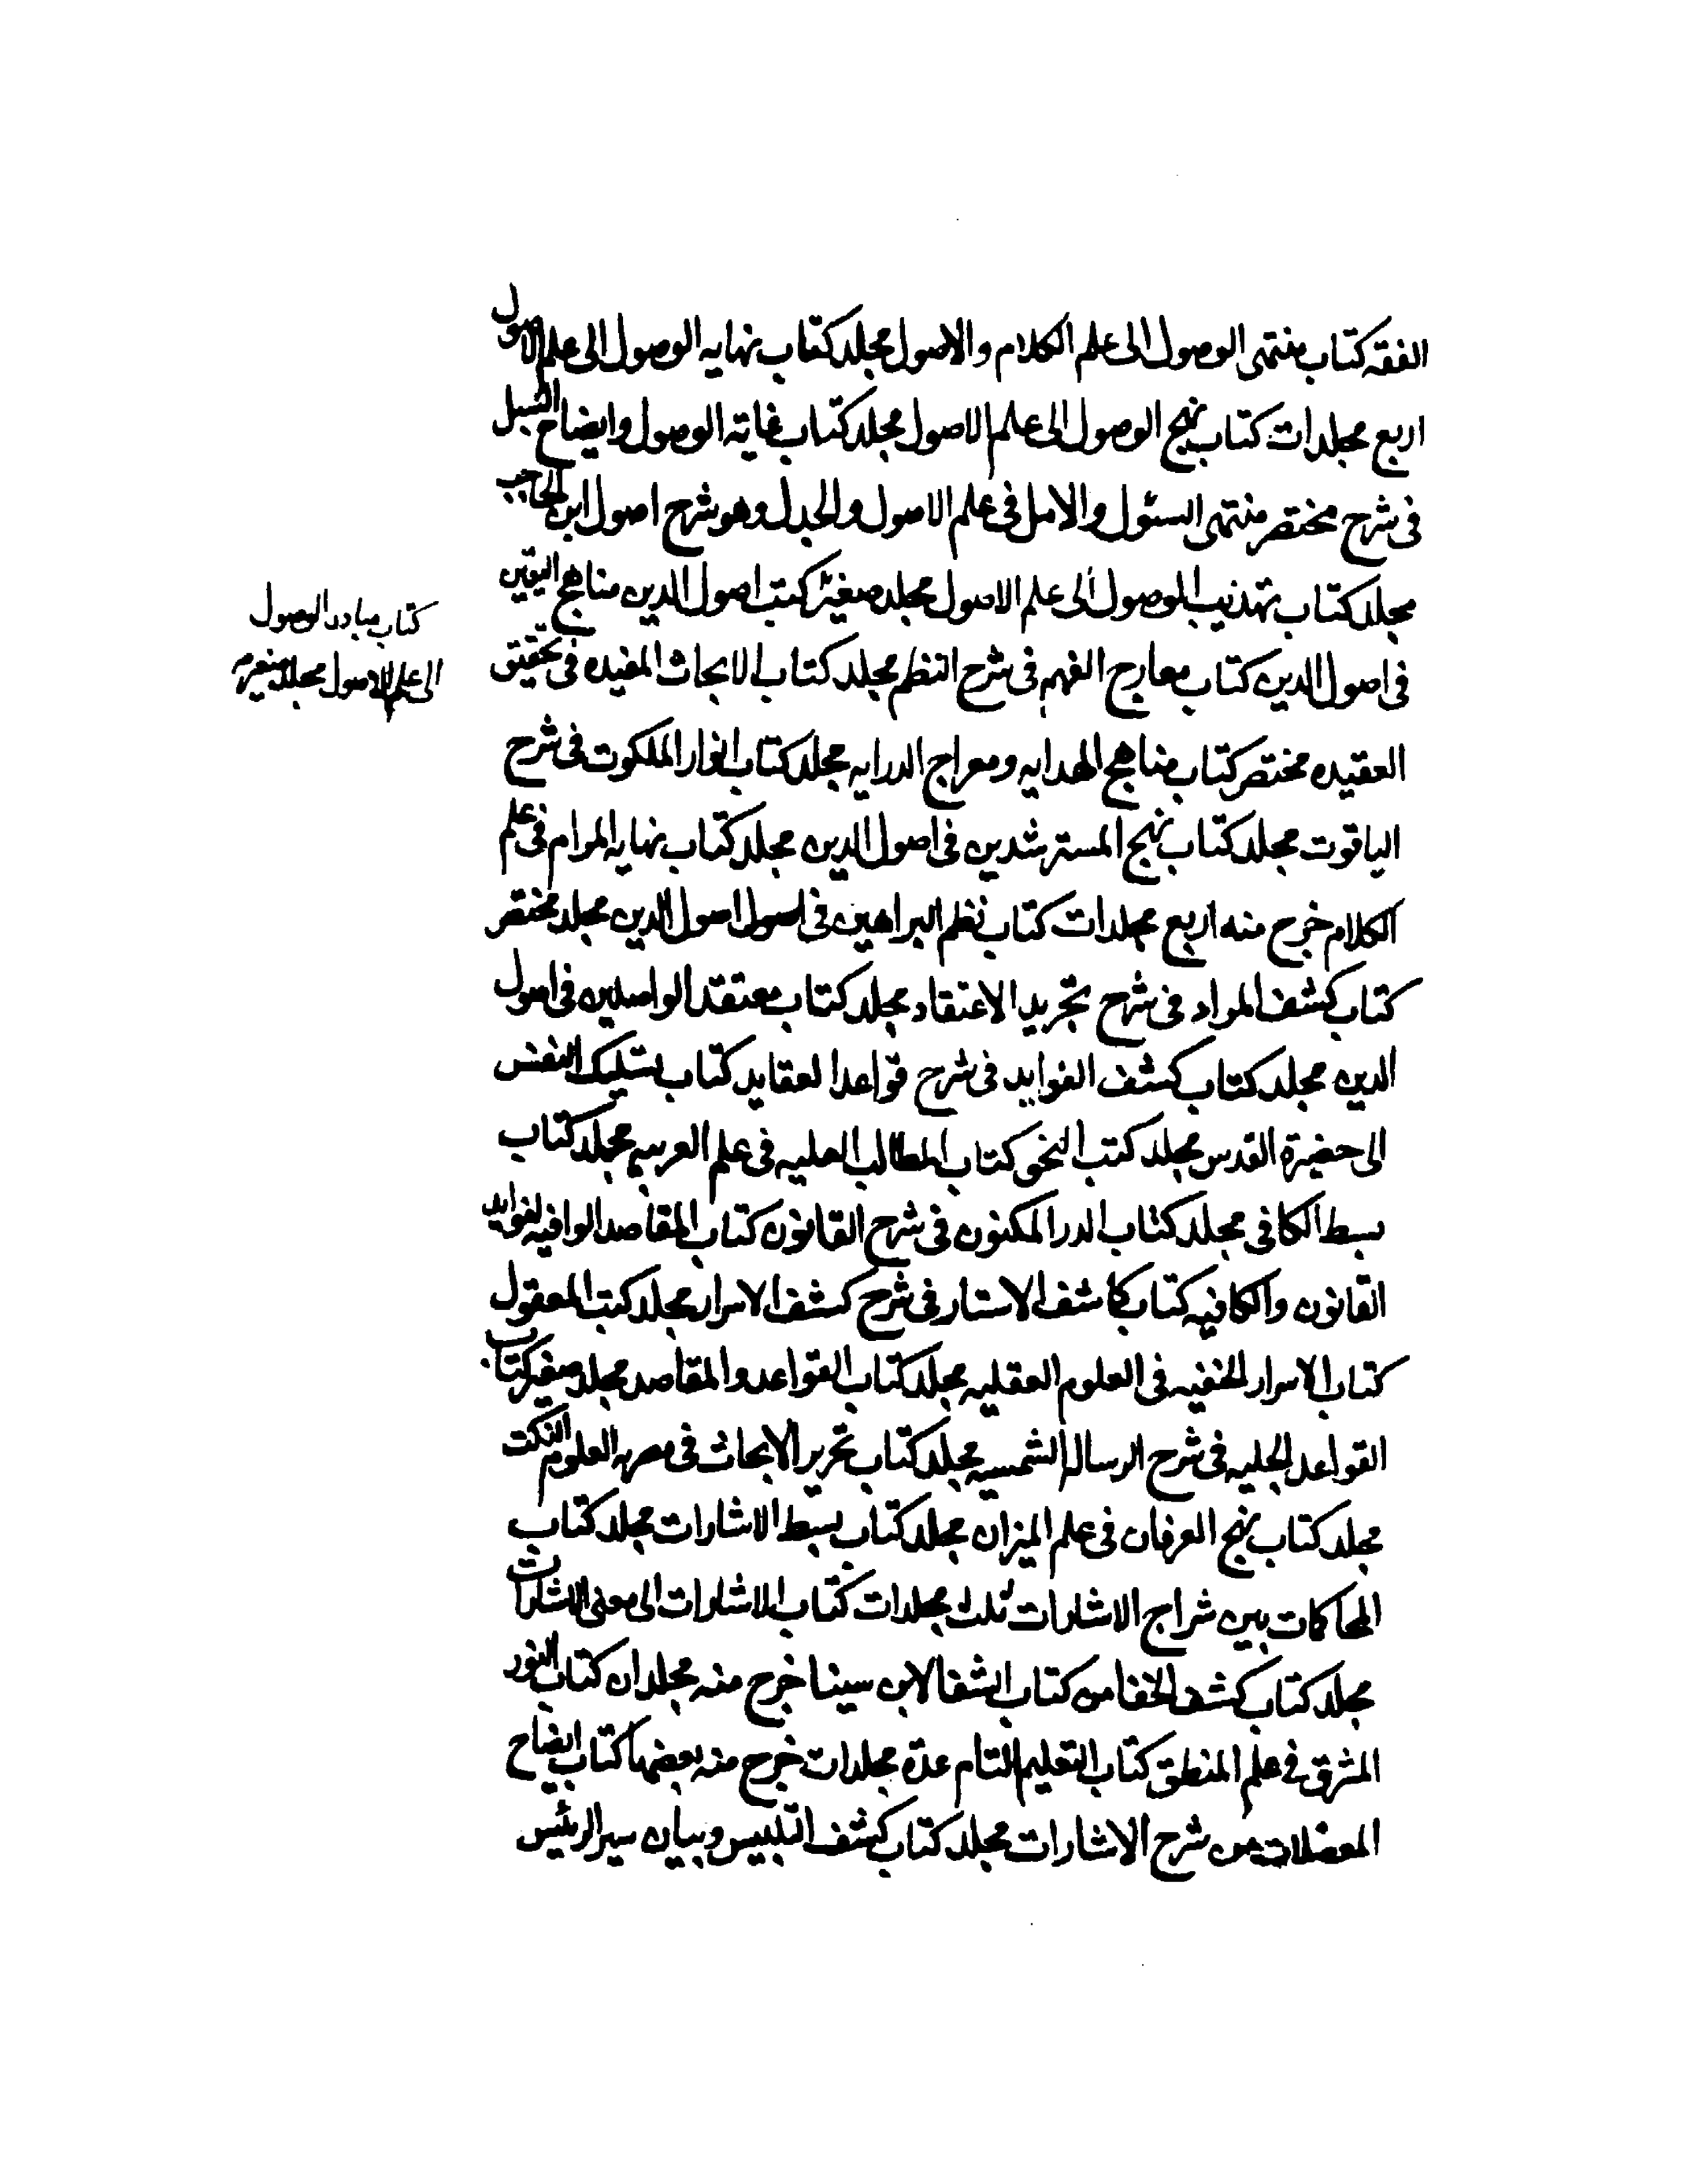 الفقه كتاب منتهى الوصول الى علم الكلام والاصول مجلد كتاب نهايه الوصول الى علم الاصول
اربع مجلدات كتاب نهج الوصول الى علم الاصول مجلد كتاب غاية الوصول وايضاح السبل
فى شرح مختصر منتهى السئول والامل فى علم الاصول والجدل وهو شرح اصول ابن الحاجب
مجلد كتاب تهذيب الوصول الى علم الاصول مجلد صغير كتب اصول الدين مناهج اليقين
فى اصول الدين كتاب معارج الفهم فى شرح النظم مجلد كتاب الابحاث المفيده فى تحقيق
العقيده مختصر كتاب مناهج الهدايه ومعراج الدرايه مجلد كتاب انوار الملكوت فى شرح
الياقوت مجلد كتاب نهج المسترشدين فى اصول الدين مجلد كتاب نهايه المرام فى علم
الكلام خرج منه اربع مجلدات كتاب نظم البراهين فى اصول الدين مجلد مختصر
كتاب كشف المراد فى شرح تجريد الاعتقاد مجلد كتاب معتقد الواصلين فى اصول
الدين مجلد كتاب كشف الفوايد فى شرح قواعد العقايد كتاب تسليك النفس
الى حضيرة القدس مجلد كتب النحو كتاب المطالب العليه فى علم العربيه مجلد كتاب
بسط الكافى مجلد كتاب الدر المكنون فى شرح القانون كتاب المقاصد الوافيه لفوايد
القانون والكافيه كتاب كاشف الاستار فى شرح كشف الاسرار مجلد كتب المعقول
كتاب الاسرار الخفيه فى العلوم العقليه مجلد كتاب القواعد والمقاصد مجلد صغير كتاب
القواعد الجليه فى شرح الرساله الشمسيه مجلد كتاب تحرير الابحاث فى معرفه العلوم الثلث
مجلد كتاب نهج العرفان فى علم الميزان مجلد كتاب بسط الاشارات مجلد كتاب
المحاكمات بين شراح الاشارات ثلث مجلدات كتاب الاشارات الى معنى الاشارات
مجلد كتاب كشف الخفا من كتاب الشفا لابن سينا خرج منه مجلدان كتاب النور
المشرق فى علم المنطق كتاب التعليم التام عدة مجلدات خرج منه بعضها كتاب ايضاح
المعضلات من شرح الاشارات مجلد كتاب كشف التلبيس وبيان سير الرئيس
كتاب مبادى الوصول
الى علم الاصول مجلد صغير